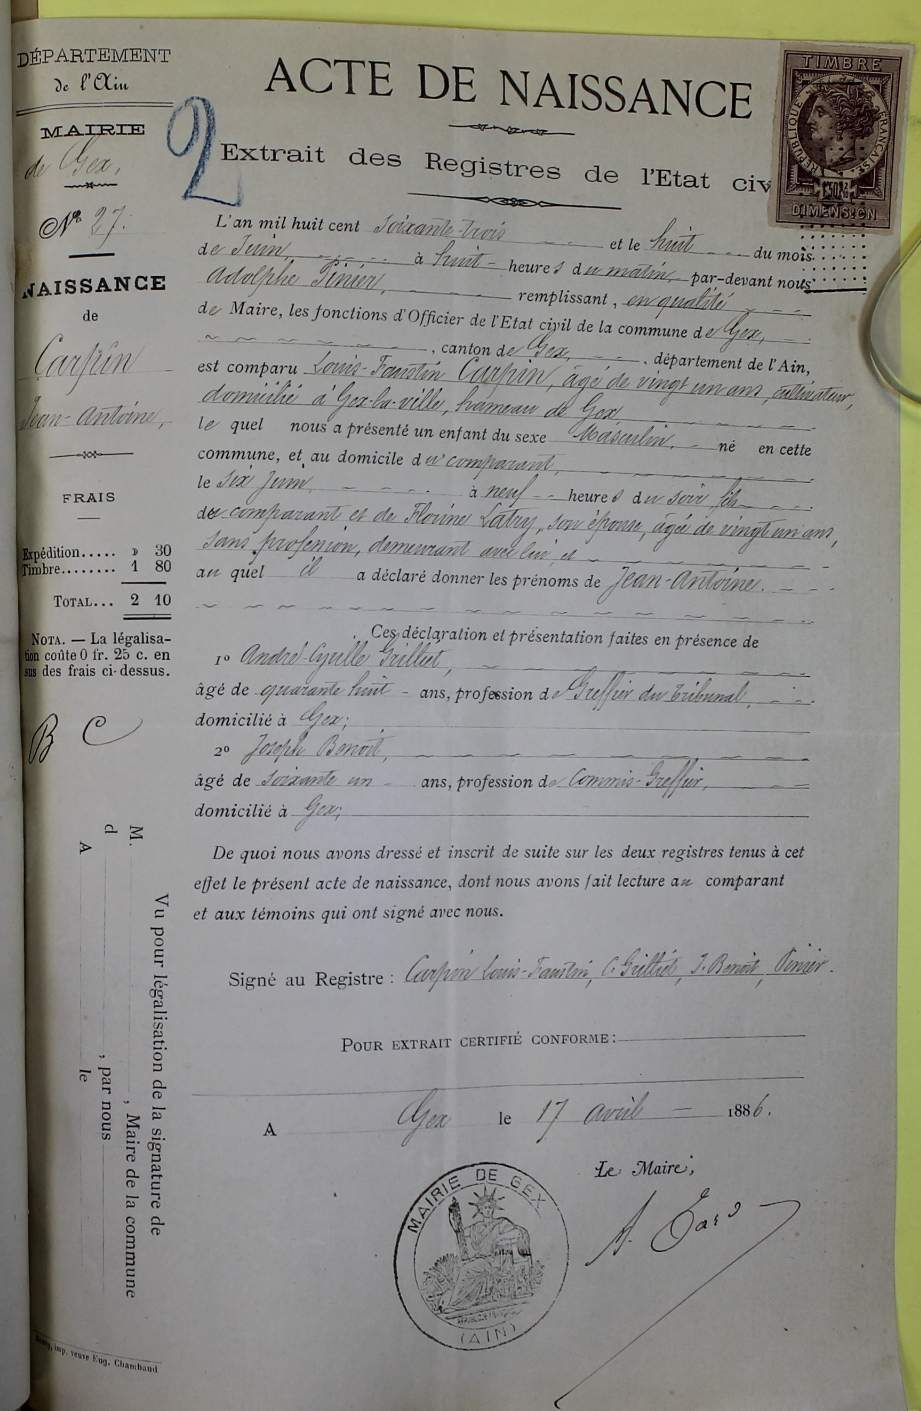 DÉPARTEMENT
de l'Ain
MAIRIE
de Gex,
Nº 27.
NAISSANCE
de
Carpin
Jean-Antoine,
FRAIS
Expédition..... » 30
Timbre........ 1 80
TOTAL... 2 10
NOTA. — La légalisa-
tion coûte 0 fr. 25 c. en
sus des frais ci-dessus.
B C
Vu pour légalisation de la signature de
M. , Maire de la commune
d , par nous
A le
imp. veuve Eug. Chambaud
2
ACTE DE NAISSANCE
Extrait des Registres de l'Etat civ
TIMBRE
RÉPUBLIQUE FRANÇAISE
DIMENSION
L'an mil huit cent soixante-trois et le huit du mois
de Juin, à huit heures du matin, par-devant nous
Adolphe Pinier, remplissant, en qualité
de Maire, les fonctions d'Officier de l'Etat civil de la commune de Gex,
, canton de Gex, , département de l'Ain,
est comparu Louis-Faustin Carpin, âgé de vingt un ans, cultivateur,
domicilié à Gex-la-ville, hameau de Gex
le quel nous a présenté un enfant du sexe Masculin, né en cette
commune, et au domicile du comparant,
le six Juin à neuf heures du soir fils
du comparant et de Florine Latry, son épouse, âgée de vingt un ans,
sans profession, demeurant avec lui, et
au quel il a déclaré donner les prénoms de Jean-Antoine.
Ces déclaration et présentation faites en présence de
1º André-Cyrille Grilliet,
âgé de quarante huit ans, profession de Greffier du tribunal,
domicilié à Gex;
2º Joseph Benoit,
âgé de soixante un ans, profession de Commis-Greffier,
domicilié à Gex;
De quoi nous avons dressé et inscrit de suite sur les deux registres tenus à cet
effet le présent acte de naissance, dont nous avons fait lecture au comparant
et aux témoins qui ont signé avec nous.
Signé au Registre : Carpin Louis-Faustin, C. Grilliet, J. Benoit, Pinier.
POUR EXTRAIT CERTIFIÉ CONFORME :
A Gex le 17 avril 1886.
Le Maire,
MAIRIE DE GEX
(AIN)